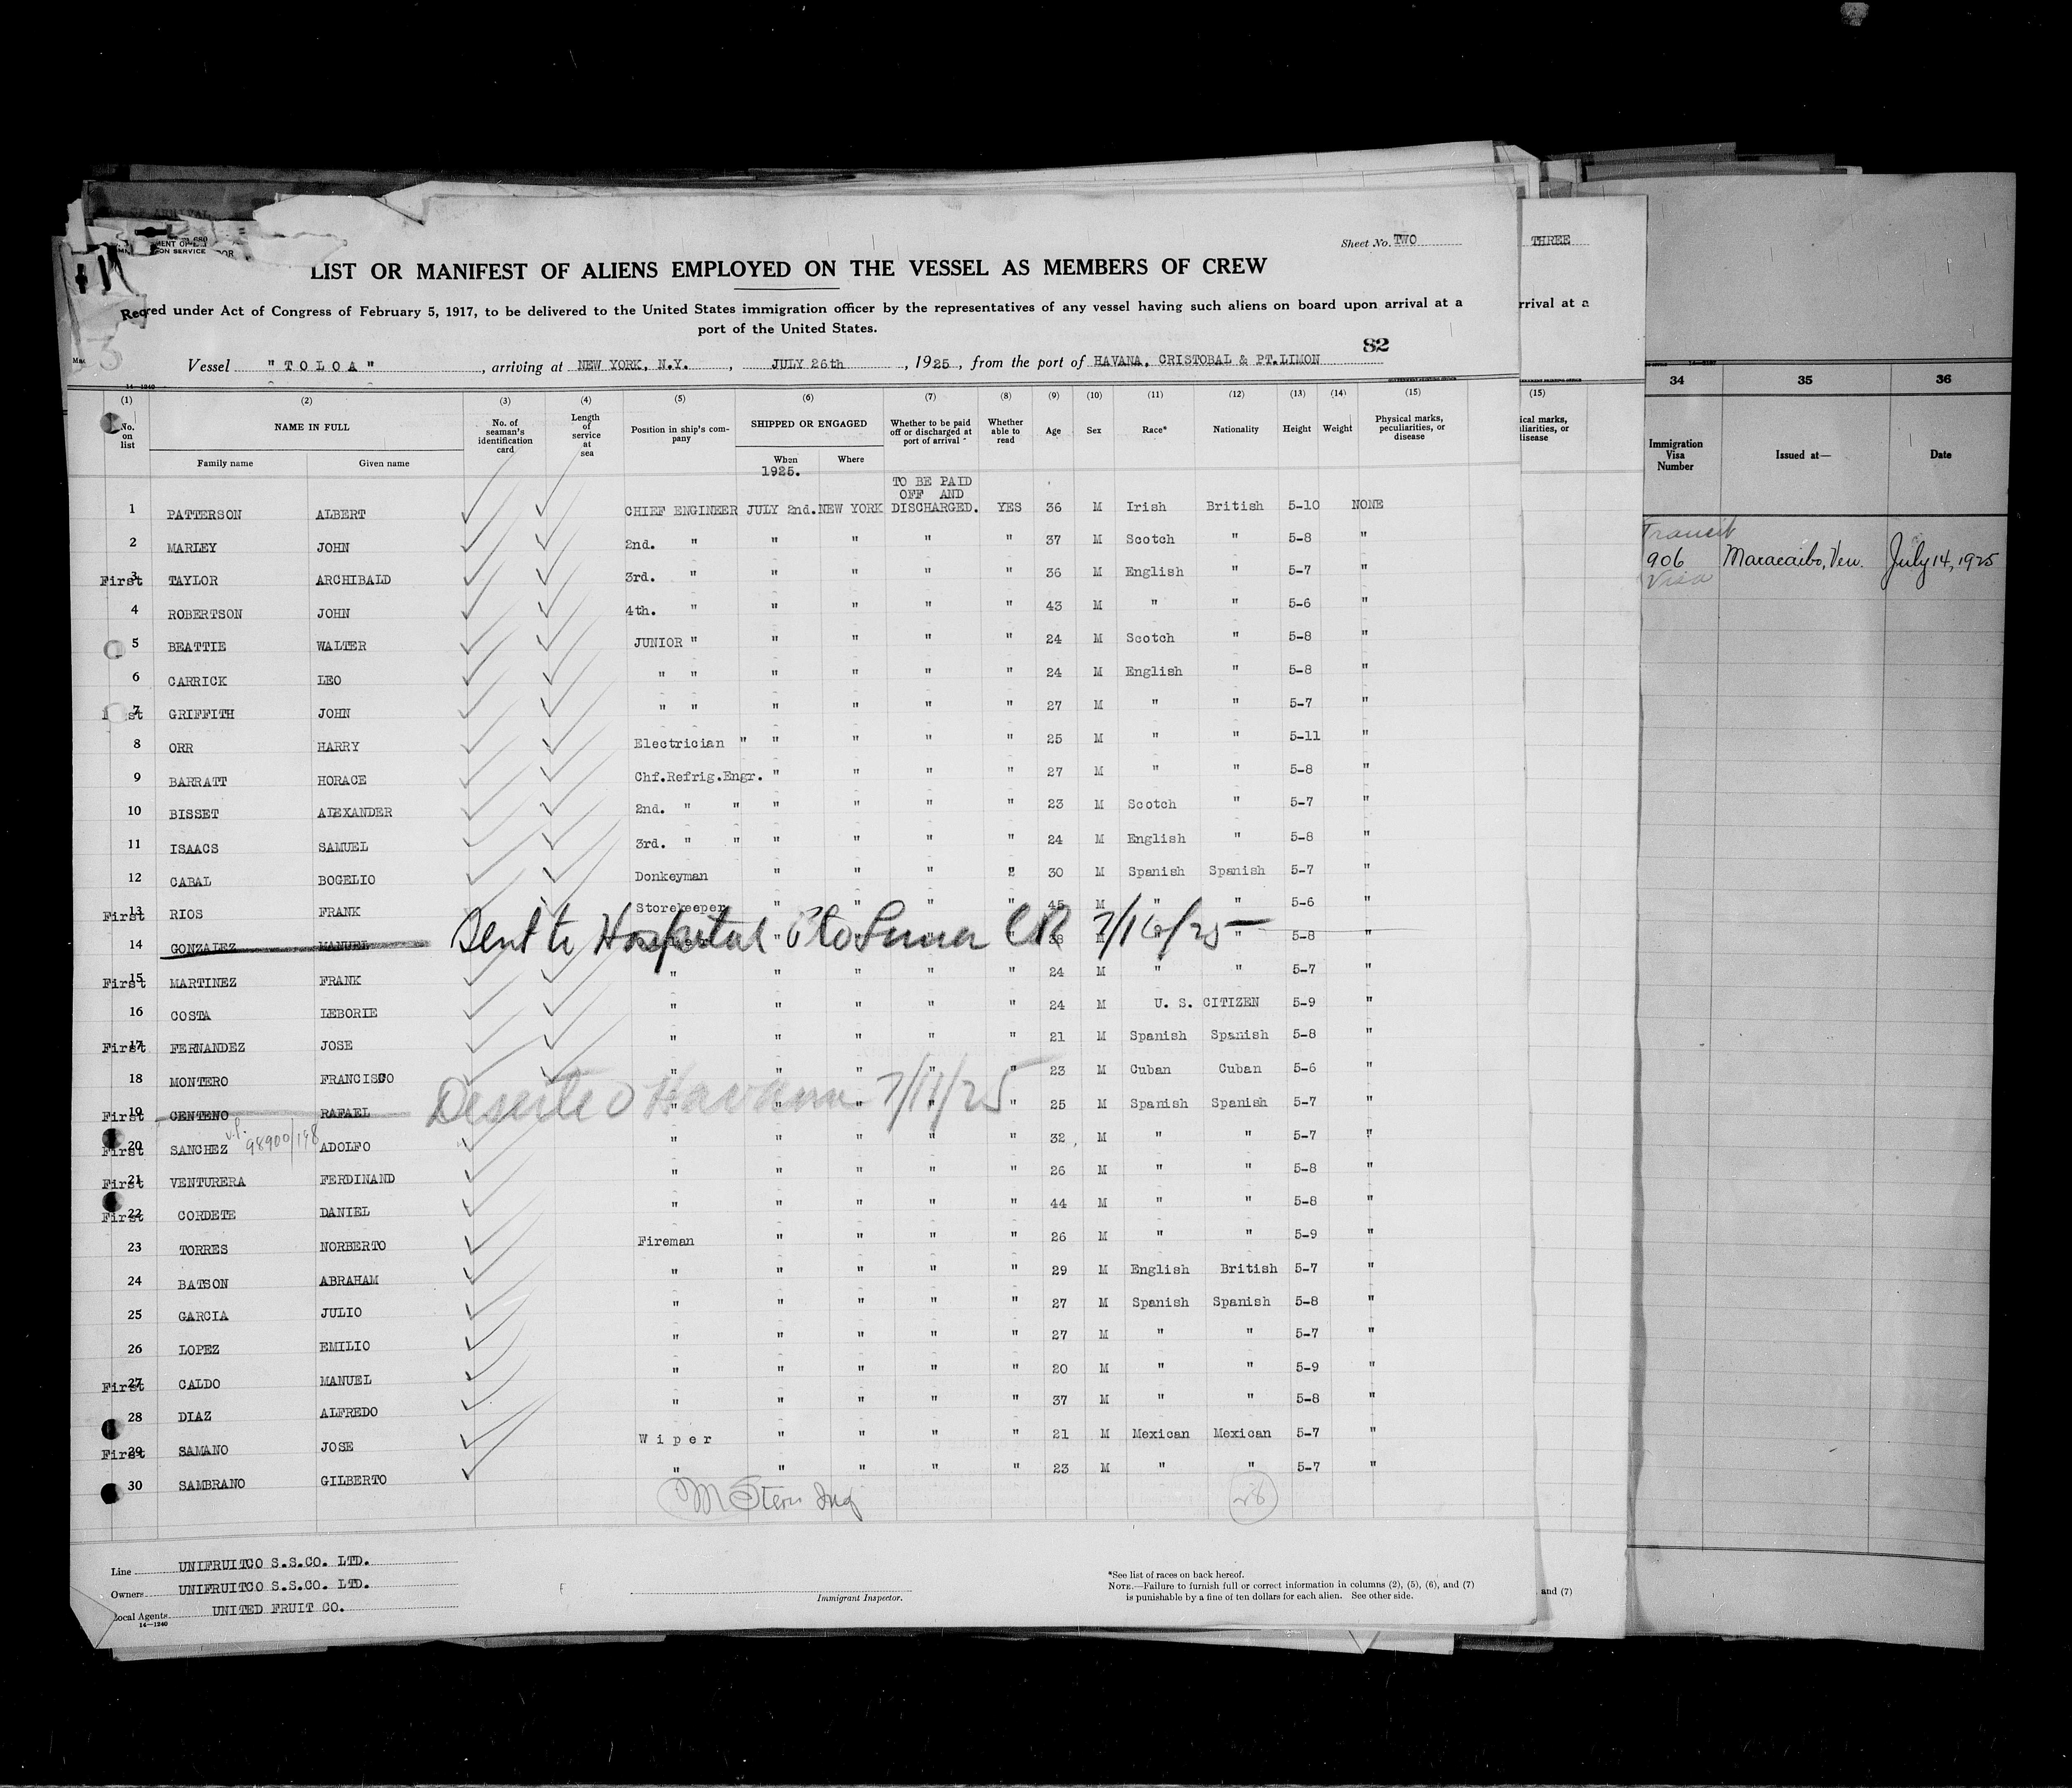 Sheet No. TWO
THREE
LIST OR MANIFEST OF ALIENS EMPLOYED ON THE VESSEL AS MEMBERS OF CREW
red under Act of Congress of February 5, 1917, to be delivered to the United States immigration officer by the representatives of any vessel having such aliens on board upon arrival at a
port of the United States.
rrival at a
82
Vessel "TOLOA", arriving at NEW YORK, N.Y., JULY 26th, 1925, from the port of HAVANA, CRISTOBAL & PT.LIMON
14—1240
(1) (2) (3) (4) (5) (6) (7) (8) (9) (10) (11) (12) (13) (14) (15)
No. on list NAME IN FULL No. of seaman's identification card Length of service at sea Position in ship's company SHIPPED OR ENGAGED Whether to be paid off or discharged at port of arrival Whether able to read Age Sex Race* Nationality Height Weight Physical marks, peculiarities, or disease
Family name Given name When Where
1925.
TO BE PAID
OFF AND
1 PATTERSON ALBERT CHIEF ENGINEER JULY 2nd. NEW YORK DISCHARGED. YES 36 M Irish British 5-10 NONE
2 MARLEY JOHN 2nd. " " " " " 37 M Scotch " 5-8 "
First 3 TAYLOR ARCHIBALD 3rd. " " " " " 36 M English " 5-7 "
4 ROBERTSON JOHN 4th. " " " " " 43 M " " 5-6 "
5 BEATTIE WALTER JUNIOR " " " " " 24 M Scotch " 5-8 "
6 CARRICK LEO " " " " " " 24 M English " 5-8 "
7 GRIFFITH JOHN " " " " " " 27 M " " 5-7 "
8 ORR HARRY Electrician " " " " " 25 M " " 5-11 "
9 BARRATT HORACE Chf.Refrig.Engr. " " " " 27 M " " 5-8 "
10 BISSET ALEXANDER 2nd. " " " " " " 23 M Scotch " 5-7 "
11 ISAACS SAMUEL 3rd. " " " " " " 24 M English " 5-8 "
12 CABAL BOGELIO Donkeyman " " " " 30 M Spanish Spanish 5-7 "
First 13 RIOS FRANK Storekeeper " " " " 45 M " " 5-6 "
14 GONZALEZ MANUEL Sent to Hospital Pto Limon CR 7/16/25 38 M " " 5-8 "
First 15 MARTINEZ FRANK " " " " " 24 M " " 5-7 "
16 COSTA LEBORIE " " " " " 24 M U. S. CITIZEN 5-9 "
First 17 FERNANDEZ JOSE " " " " " 21 M Spanish Spanish 5-8 "
18 MONTERO FRANCISCO " " " " " 23 M Cuban Cuban 5-6 "
First 19 CENTENO RAFAEL Deserted Havana 7/11/25 " 25 M Spanish Spanish 5-7 "
First 20 SANCHEZ v.p. 98900/198 ADOLFO " " " " " 32 M " " 5-7 "
First 21 VENTURERA FERDINAND " " " " " 26 M " " 5-8 "
First 22 CORDETE DANIEL " " " " " 44 M " " 5-8 "
23 TORRES NORBERTO Fireman " " " " 26 M " " 5-9 "
24 BATSON ABRAHAM " " " " " 29 M English British 5-7 "
25 GARCIA JULIO " " " " " 27 M Spanish Spanish 5-8 "
26 LOPEZ EMILIO " " " " " 27 M " " 5-7 "
First 27 CALDO MANUEL " " " " " 20 M " " 5-9 "
28 DIAZ ALFREDO " " " " " 37 M " " 5-8 "
First 29 SAMANO JOSE Wiper " " " " 21 M Mexican Mexican 5-7 "
30 SAMBRANO GILBERTO " " " " " 23 M " " 5-7 "
M Stern Insp
28
Line UNIFRUITCO S.S.CO. LTD.
Owners UNIFRUITCO S.S.CO. LTD.
Local Agents UNITED FRUIT CO.
14—1240
Immigrant Inspector.
*See list of races on back hereof.
NOTE.—Failure to furnish full or correct information in columns (2), (5), (6), and (7)
is punishable by a fine of ten dollars for each alien. See other side.
(15)
ical marks,
liarities, or
disease
and (7)
34 35 36
Immigration Visa Number Issued at— Date
Transit
906 Maracaibo, Ven. July 14, 1925
Visa